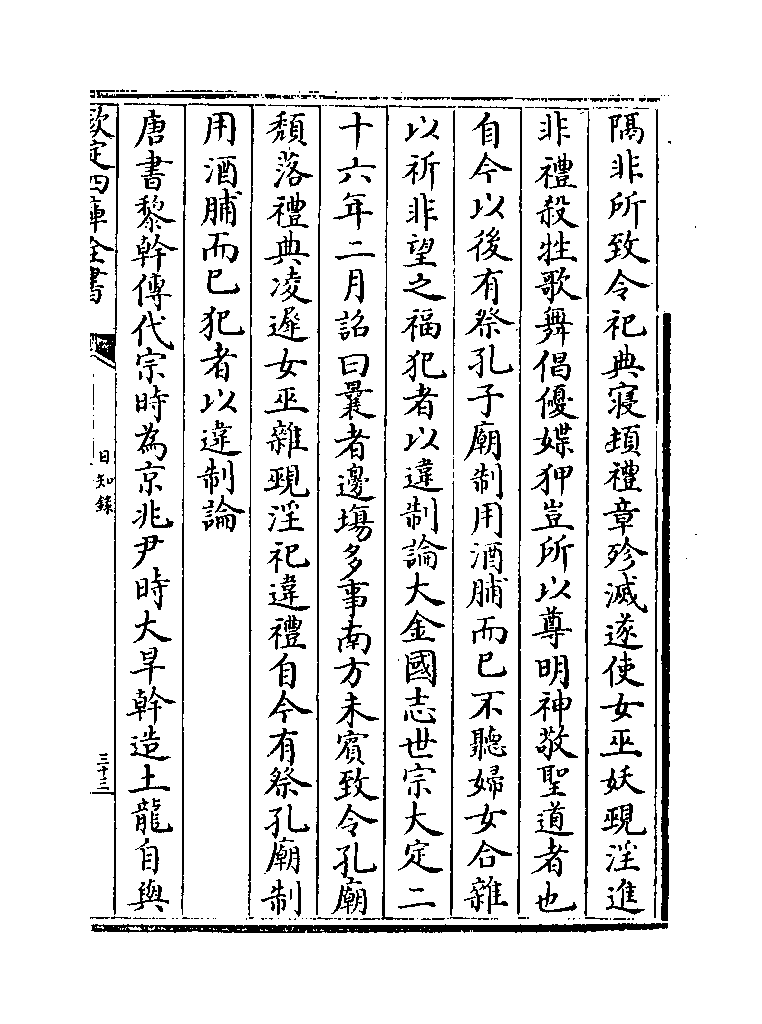 隅非所致令祀典寝頓禮章殄滅遂使女巫妖覡淫進
非禮殺牲歌舞倡優媟狎豈所以尊明神敬聖道者也
自今以後有祭孔子廟制用酒脯而已不聽婦女合雜
以祈非望之福犯者以違制論大金國志世宗大定二
十六年二月詔曰曩者邊塲多事南方未賓致令孔廟
頽落禮典凌遲女巫雜覡淫祀違禮自今有祭孔廟制
用酒脯而已犯者以違制論
唐書黎幹傳代宗時為京兆尹時大旱幹造土龍自與
欽定四庫全書
日知録
三十三